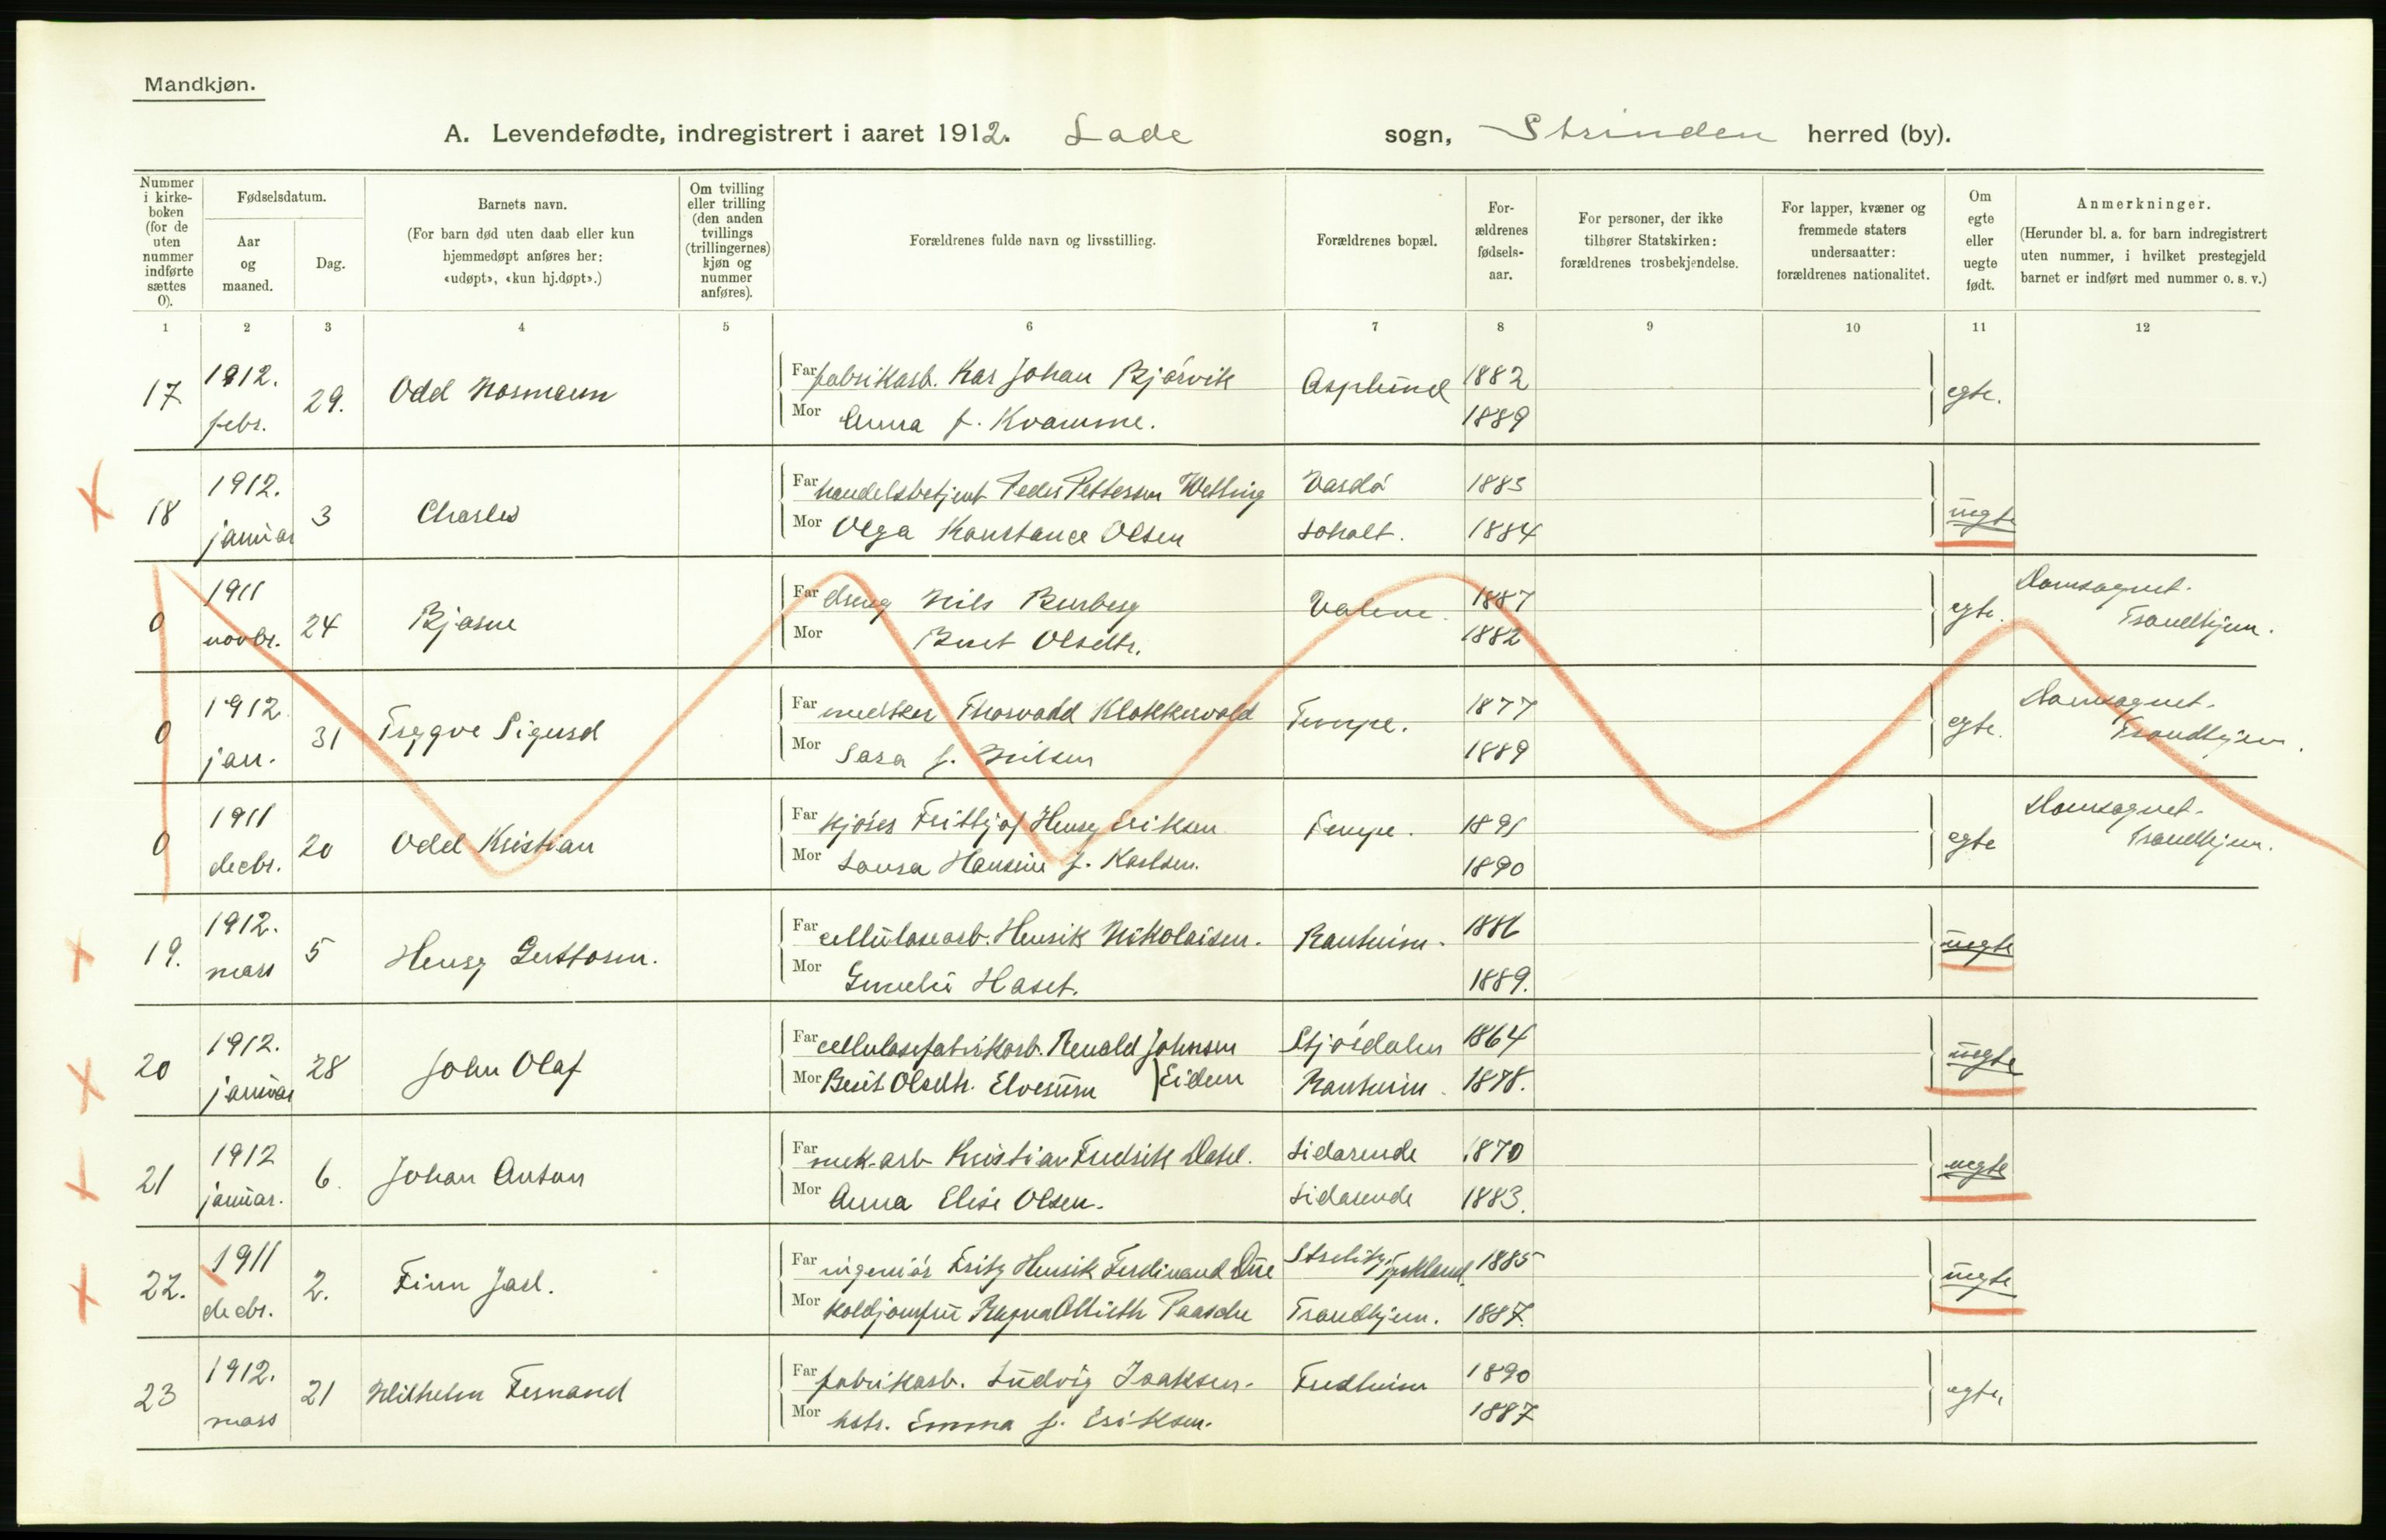 Mandkjøn.
A. Levendefødte, indregistrert i aaret 1912. Lade sogn, Strinden herred (by).
Nummer i kirke-boken (for de uten nummer indførte sættes 0).
Fødselsdatum.
Aar og maaned.
Dag.
Barnets navn.
(For barn død uten daab eller kun hjemmedøpt anføres her: «udøpt», «kun hj.døpt».)
Om tvilling eller trilling (den anden tvillings (trillingernes) kjøn og nummer anføres).
Forældrenes fulde navn og livsstilling.
Forældrenes bopæl.
For-ældrenes fødsels-aar.
For personer, der ikke tilhører Statskirken: forældrenes trosbekjendelse.
For lapper, kvæner og fremmede staters undersaatter: forældrenes nationalitet.
Om egte eller uegte født.
Anmerkninger.
(Herunder bl. a. for barn indregistrert uten nummer, i hvilket prestegjeld barnet er indført med nummer o. s. v.)
1 2 3 4 5 6 7 8 9 10 11 12
17 1912. febr. 29. Odd Normann
Far fabrikarb. Kar Johan Bjørvik Asplund 1882 egte.
Mor Anna f. Kvamme. 1889
18 1912. januar 3 Charles
Far handelsbetjent Peder Pettersen Wetting Vardø 1885 uegte
Mor Olga Konstance Olsen Loholt. 1884
0 1911 novbr. 24 Bjarne
Far dreng Nils Berberg 1887 egte. Domsognet. Trondhjem.
Mor Beret Olsdtr. 1882
0 1912 jan. 31 Trygve Sigurd
Far snedker Thorvald Klokkervold Tempe. 1877 egte. Domsognet. Trondhjem.
Mor Sara f. Nilsen 1889
0 1911 decbr. 20 Odd Kristian
Far kjører Frithjof Henry Eriksen Tempe. 1891 egte Domsognet. Trondhjem.
Mor Laura Hansine f. Karlsen. 1890
19. 1912. mars 5 Henry Guttorm.
Far cellulosearb. Henrik Nikolaisen. Ranheim. 1886 uegte
Mor Emelie Haset. 1889.
20 1912. januar 28 John Olaf
Far cellulosefabrikarb. Renald Johnsen Eidem Stjørdalen 1864 uegte
Mor Berit Olsdtr. Elvesum Ranheim. 1878.
21 1912 januar. 6. Johan Anton
Far mek. arb Kristian Fredrik Dahl. Lidarende 1870 uegte
Mor Anna Elise Olsen. Lidarende 1883.
22. 1911 decbr. 2. Finn Jarl.
Far ingeniør Fritz Henrik Ferdinand Due Strelitz, Tyskland. 1885 uegte
Mor Koldjomfru Ragna Paasche Trondhjem. 1887.
23 1912. mars 21 Wilhelm Fernand
Far fabrikarb. Ludvig Isaksen. Fredheim 1890 egte.
Mor hstr. Emma f. Eriksen. 1887